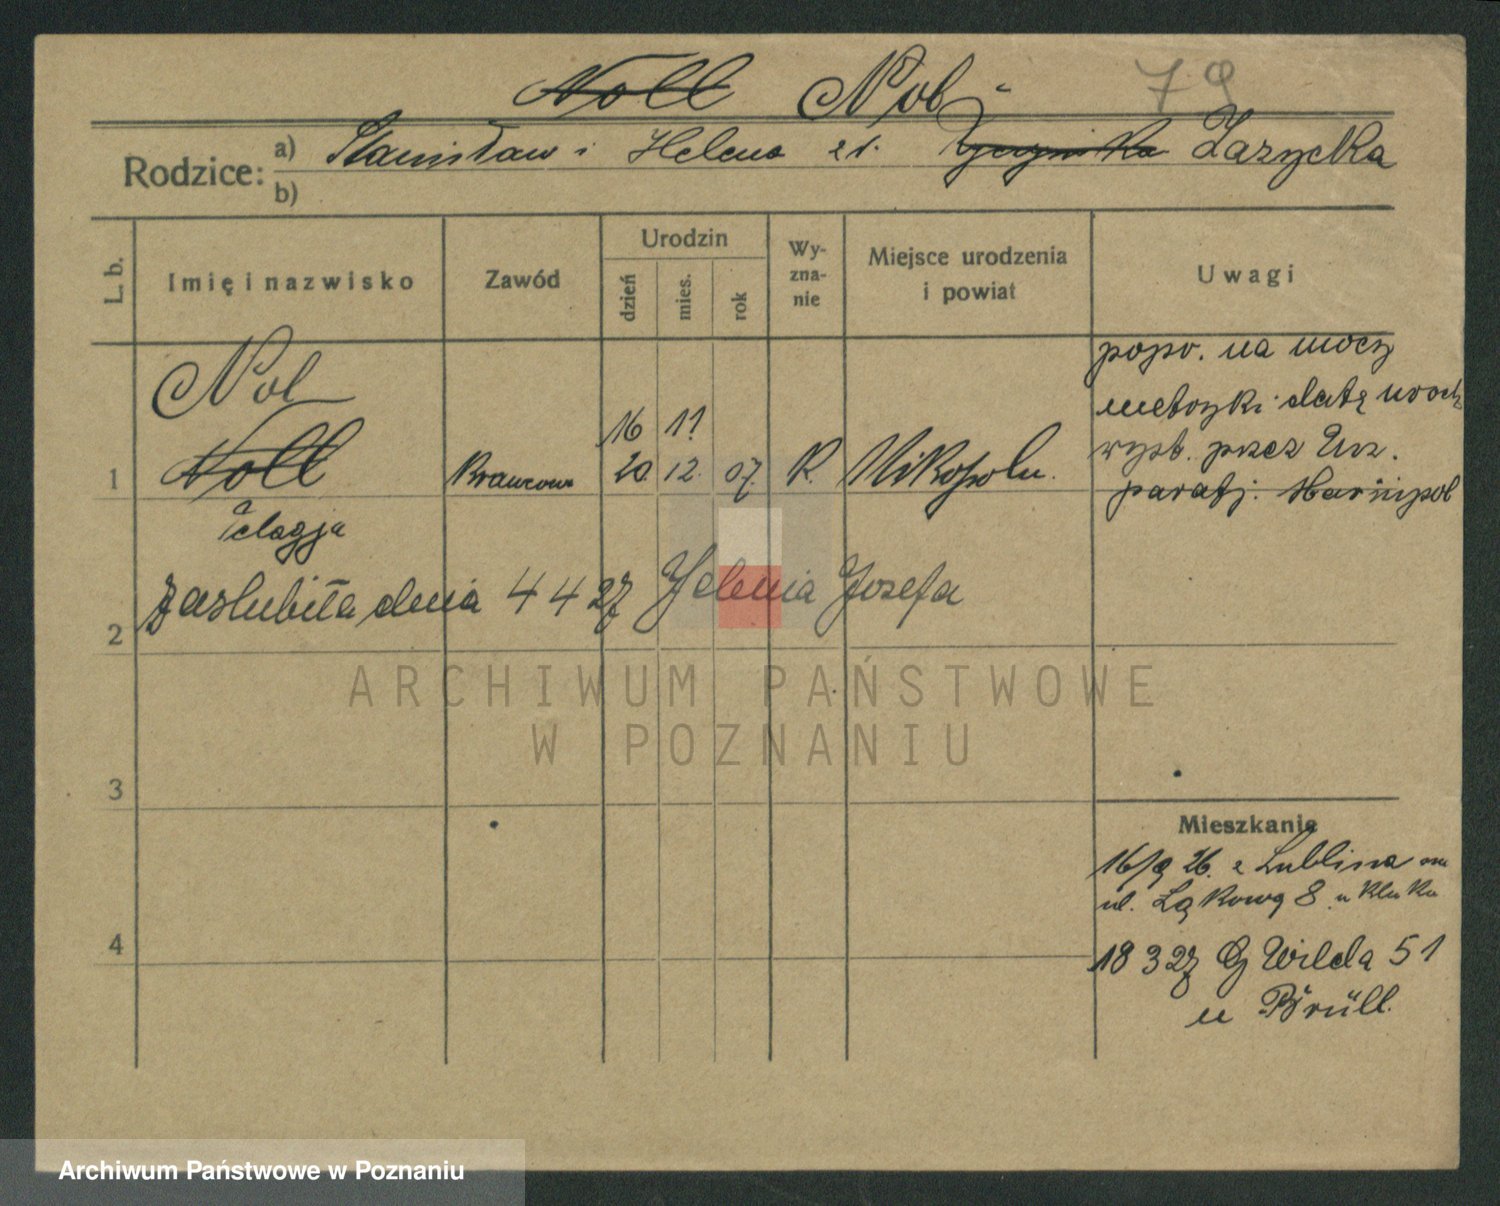 Noll Nol 79
Rodzice: a) Stanisław i Helena z d. Zarzycka
b)
L. b. Imię i nazwisko Zawód Urodzin Wy-zna-nie Miejsce urodzenia i powiat Uwagi
dzień mies. rok
Nol popr. na mocy
metryki datę urodz
16 11 wyst. przez Urz.
1 Noll Krawcowa 20. 12. 07. R. Nikopolu. parafj.
Pelagja
zaslubiła dnia 4 4 27 Helenia Jozefa
2
ARCHIWUM PAŃSTWOWE
W POZNANIU
3
Mieszkanie
16/9 26. z Lublina na
ul. Łąkowa 8 u Kluka
4
18 3 27 G Wilda 51
u Brüll.
Archiwum Państwowe w Poznaniu